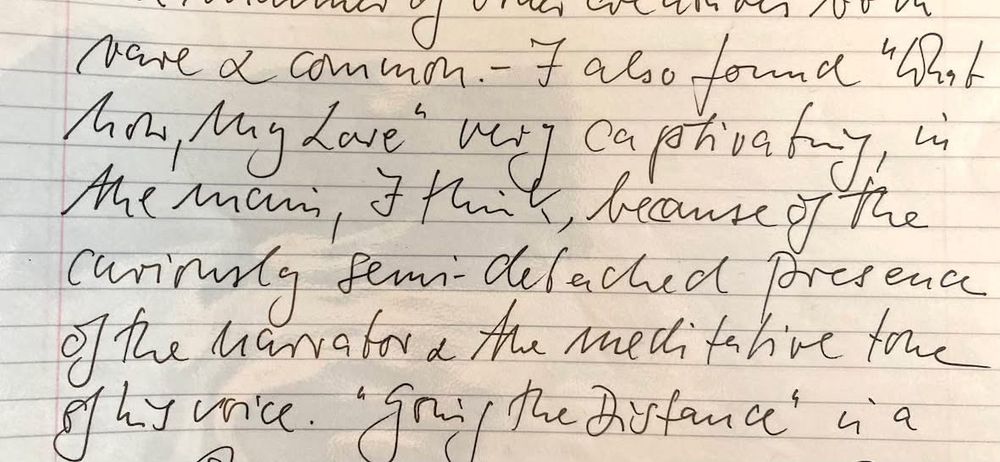 of other creatures both
rare & common. - I also found "What
how, My Love" very captivating, in
the main, I think, because of the
curiously semi-detached presence
of the narrator & the meditative tone
of his voice. "Going the Distance" is a